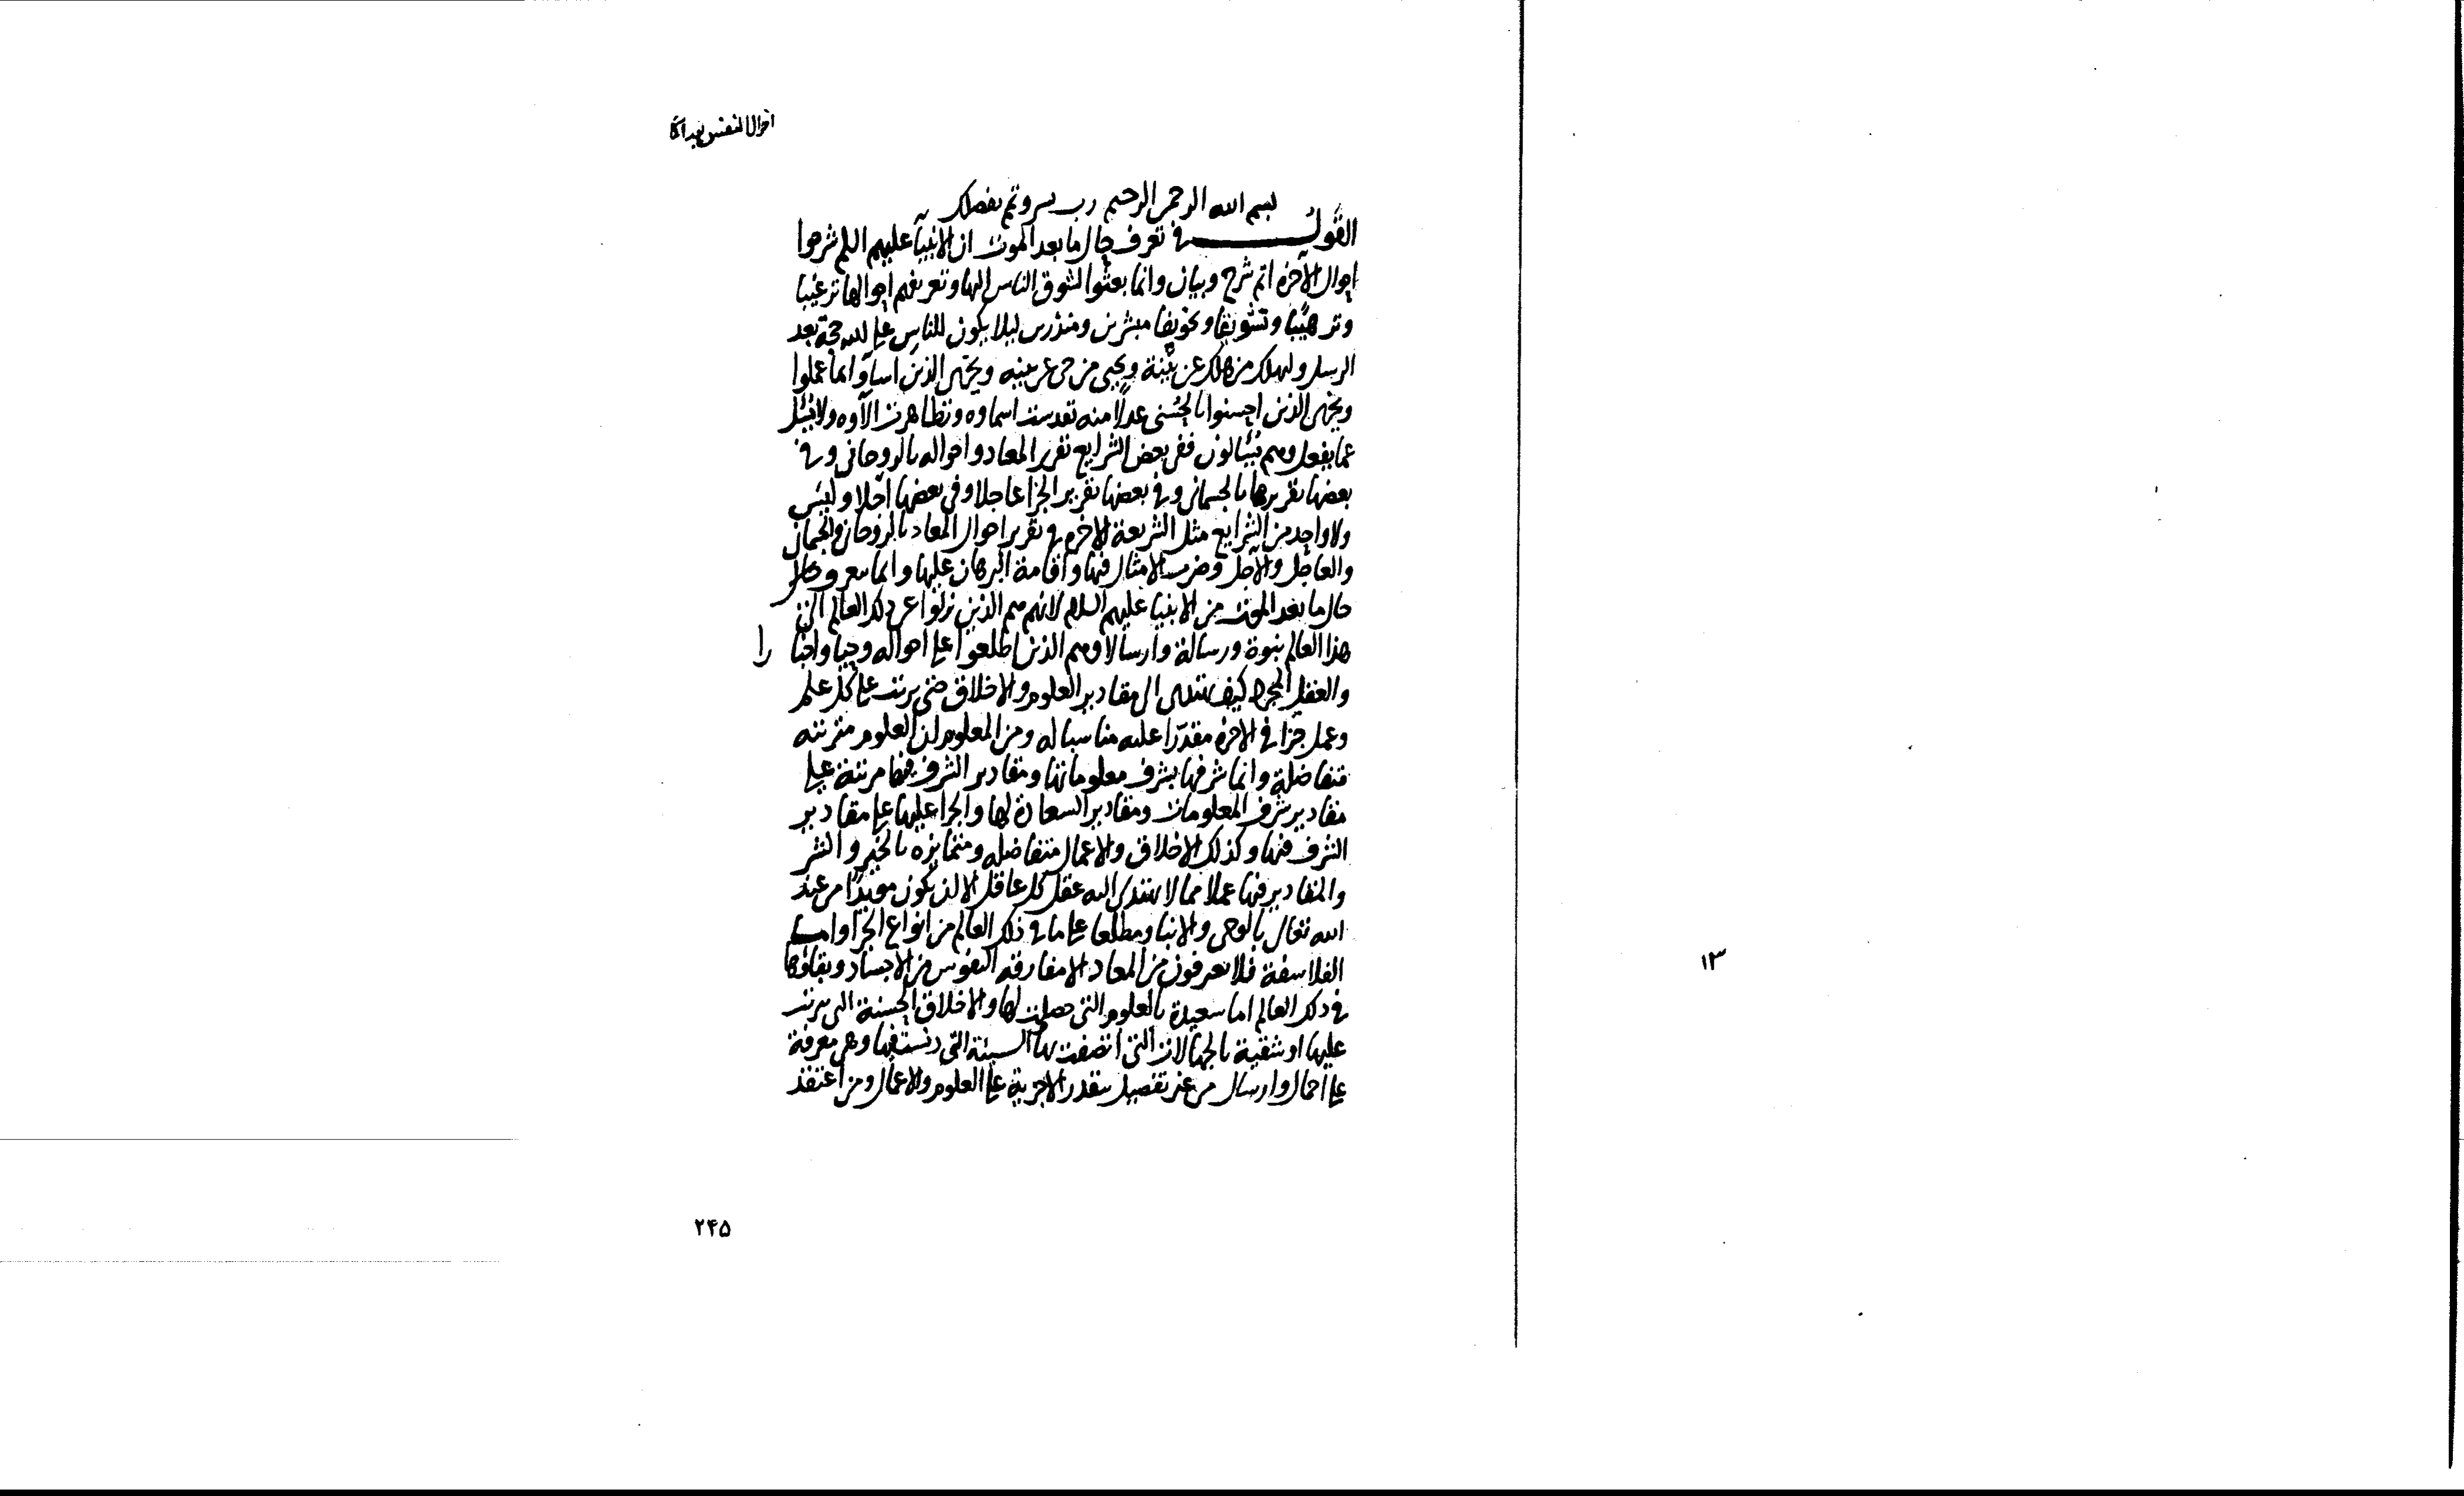 احوال النفس بعد
بسم الله الرحمن الرحيم رب يسر وتمم بفضلك
القول في تعرف حال ما بعد الموت ان الانبيآء عليهم السلم شرحوا
احوال الآخرة اتم شرح وبيان وانما بعثوا لتشوق الناس اليها وتعريفهم احوالها ترغيبا
وترهيبا وتشويقا وتخويفا مبشرين ومنذرين ليلا يكون للناس على الله حجة بعد
الرسل وليهلك من هلك عن بينة ويحيى من حى عن بينه ويجزى الذين اسآوا بما عملوا
ويجزى الذين احسنوا بالحسنى عدلا منه تقدست اسماوه وتظاهرت الآوه ولا يسئل
عما يفعل وهم يسئالون ففى بعض الشرايع تقرير المعاد واحواله بالروحانى وفى
بعضها تقريرها بالجسمانى وفى بعضها تقرير الجزا عاجلا وفى بعضها آجلا وليس
ولا واحد من الشرايع مثل الشريعة الاخره فى تقرير احوال المعاد بالروحانى والجسمانى
والعاجل والآجل وضرب الامثال فيها واقامة البرهان عليها وانما
حال ما بعد الموت من الانبيا عليهم السلام لانهم هم الذين نزلوا عن ذلك العالم الى
هذا العالم نبوة ورسالة وارسالا وهم الذين اطلعوا على احواله وحيا وا
والعقل المجرد كيف يهتدى الى مقادير العلوم والاخلاق حتى يرتب على كل علم
وعمل جزآ فى الاخرة مقدرا عليه مناسبا له ومن المعلوم ان العلوم مترتبه
متفاضلة وانما شرفها بشرف معلوماتها ومقادير الشرف فيها مرتبة على
مقادير شرف المعلومات ومقادير السعادة لها والجزا عليها على مقادير
الشرف فيها وكذلك الاخلاق والاعمال متفاضله ومتمايزه بالخير والشر
والمقادير فيها عملا مما لا يهتدى اليه عقل كل عاقل الا ان يكون مويدا من عند
الله تعالى بالوحى والانبا ومطلعا على ما فى ذلك العالم من انواع الجزآ واما
الفلاسفة فلا يعرفون من المعاد الا مفارقة النفوس من الاجساد وبقاؤها
فى ذلك العالم اما سعيدة بالعلوم التى حصلت لها والاخلاق الحسنة التى ترتبت
عليها او شقية بالجهالات التى اتصفت بها السيئة التى دنست بها وهى معرفة
على اجمال وارسال من غير تفصيل بتقدر الاجزية على العلوم والاعمال ومن اعتقد
٢٤٥
١٣